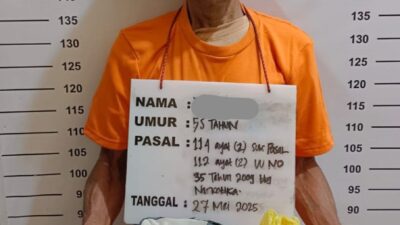 135
130
125
120
115
110
105
100
95
NAMA :
UMUR : 55 TAHUN
PASAL : 114 ayat (2) Sub PASAL
112 ayat (2) UU NO
35 Tahun 2009 ttg
Narkotika.
TANGGAL : 27 Mei 2025
135
130
125
120
115
110
105
100
95